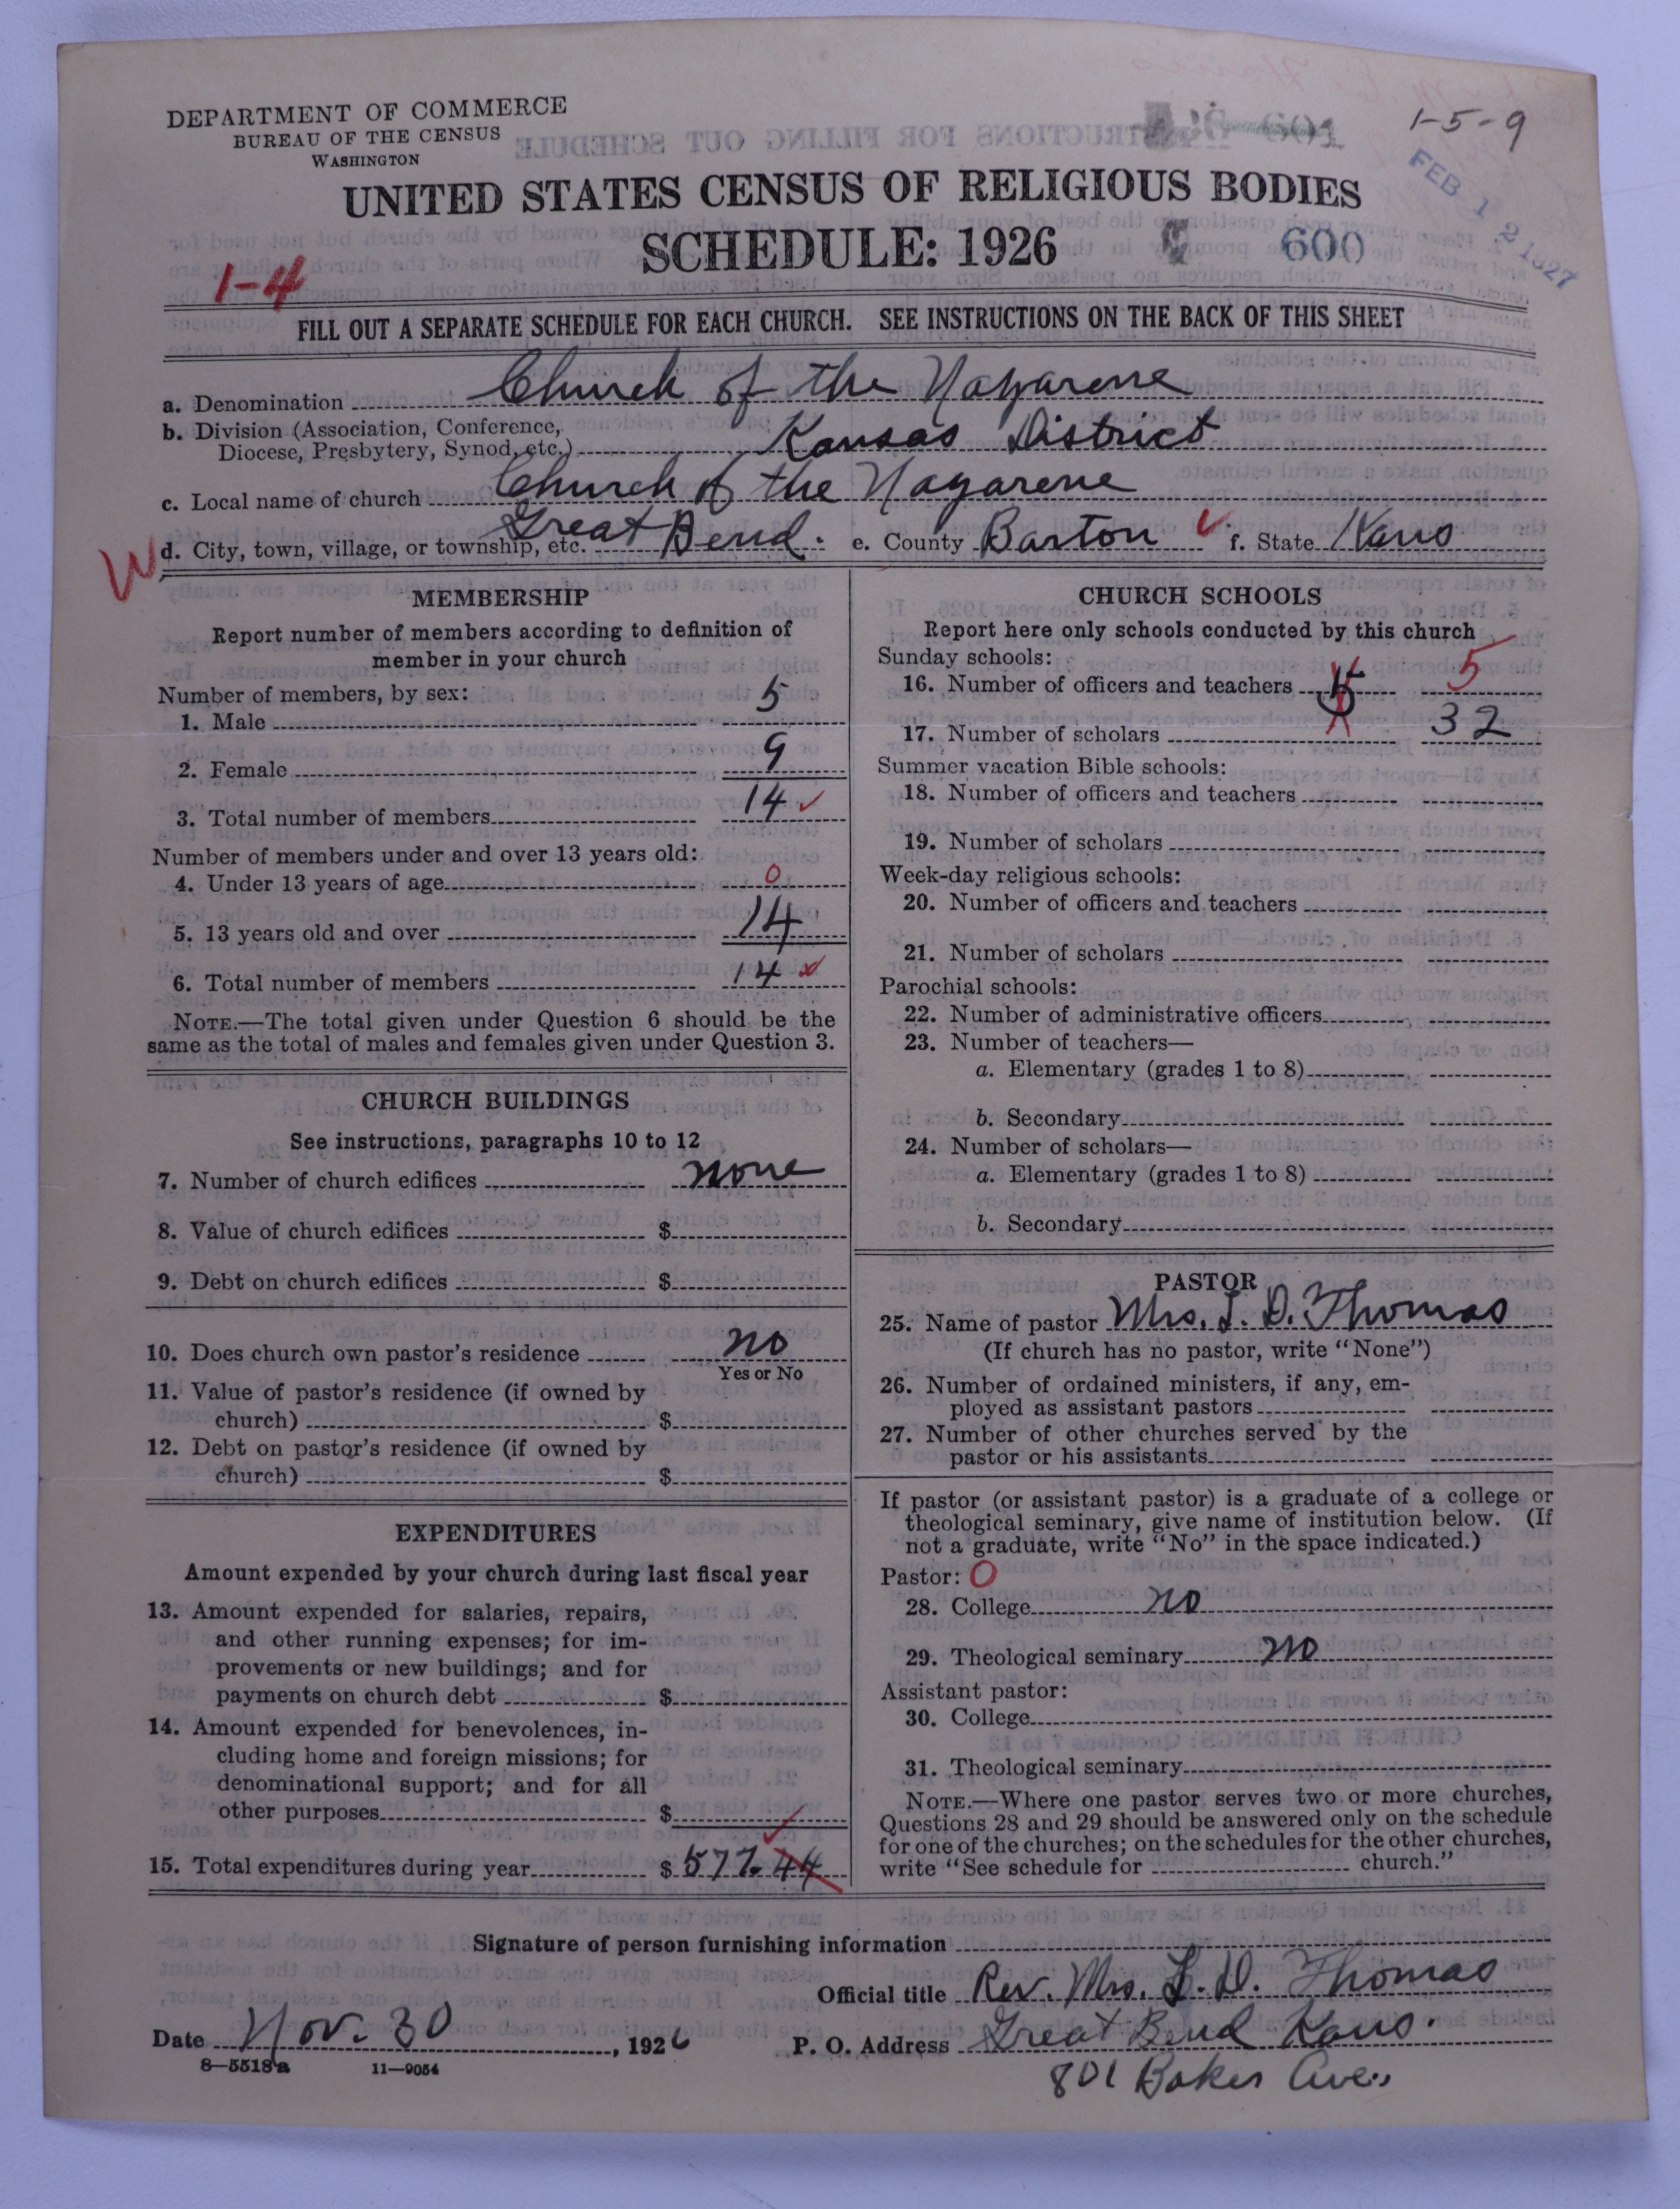 DEPARTMENT OF COMMERCE
BUREAU OF THE CENSUS
WASHINGTON
1-5-9
FEB 12 1927
UNITED STATES CENSUS OF RELIGIOUS BODIES
SCHEDULE: 1926
600
1-4
FILL OUT A SEPARATE SCHEDULE FOR EACH CHURCH. SEE INSTRUCTIONS ON THE BACK OF THIS SHEET
a. Denomination Church of the Nazarene
b. Division (Association, Conference,
Diocese, Presbytery, Synod, etc.) Kansas District
c. Local name of church Church of the Nazarene
W d. City, town, village, or township, etc. Great Bend. e. County Barton f. State Kans
MEMBERSHIP
Report number of members according to definition of
member in your church
Number of members, by sex:
1. Male 5
2. Female 9
3. Total number of members 14
Number of members under and over 13 years old:
4. Under 13 years of age 0
5. 13 years old and over 14
6. Total number of members 14
NOTE.—The total given under Question 6 should be the
same as the total of males and females given under Question 3.
CHURCH BUILDINGS
See instructions, paragraphs 10 to 12
7. Number of church edifices none
8. Value of church edifices $
9. Debt on church edifices $
10. Does church own pastor's residence no
Yes or No
11. Value of pastor's residence (if owned by
church) $
12. Debt on pastor's residence (if owned by
church) $
EXPENDITURES
Amount expended by your church during last fiscal year
13. Amount expended for salaries, repairs,
and other running expenses; for im-
provements or new buildings; and for
payments on church debt $
14. Amount expended for benevolences, in-
cluding home and foreign missions; for
denominational support; and for all
other purposes $
15. Total expenditures during year $577.44
CHURCH SCHOOLS
Report here only schools conducted by this church
Sunday schools:
16. Number of officers and teachers 5 5
17. Number of scholars 32
Summer vacation Bible schools:
18. Number of officers and teachers
19. Number of scholars
Week-day religious schools:
20. Number of officers and teachers
21. Number of scholars
Parochial schools:
22. Number of administrative officers
23. Number of teachers—
a. Elementary (grades 1 to 8)
b. Secondary
24. Number of scholars—
a. Elementary (grades 1 to 8)
b. Secondary
PASTOR
25. Name of pastor Mrs. L. D. Thomas
(If church has no pastor, write "None")
26. Number of ordained ministers, if any, em-
ployed as assistant pastors
27. Number of other churches served by the
pastor or his assistants
If pastor (or assistant pastor) is a graduate of a college or
theological seminary, give name of institution below. (If
not a graduate, write "No" in the space indicated.)
Pastor: 0
28. College no
29. Theological seminary no
Assistant pastor:
30. College
31. Theological seminary
NOTE.—Where one pastor serves two or more churches,
Questions 28 and 29 should be answered only on the schedule
for one of the churches; on the schedules for the other churches,
write "See schedule for church."
Signature of person furnishing information
Official title Rev. Mrs. L. D. Thomas
Date Nov. 30, 1926 P. O. Address Great Bend Kans.
8-5518a 11-9054
801 Baker Ave.,